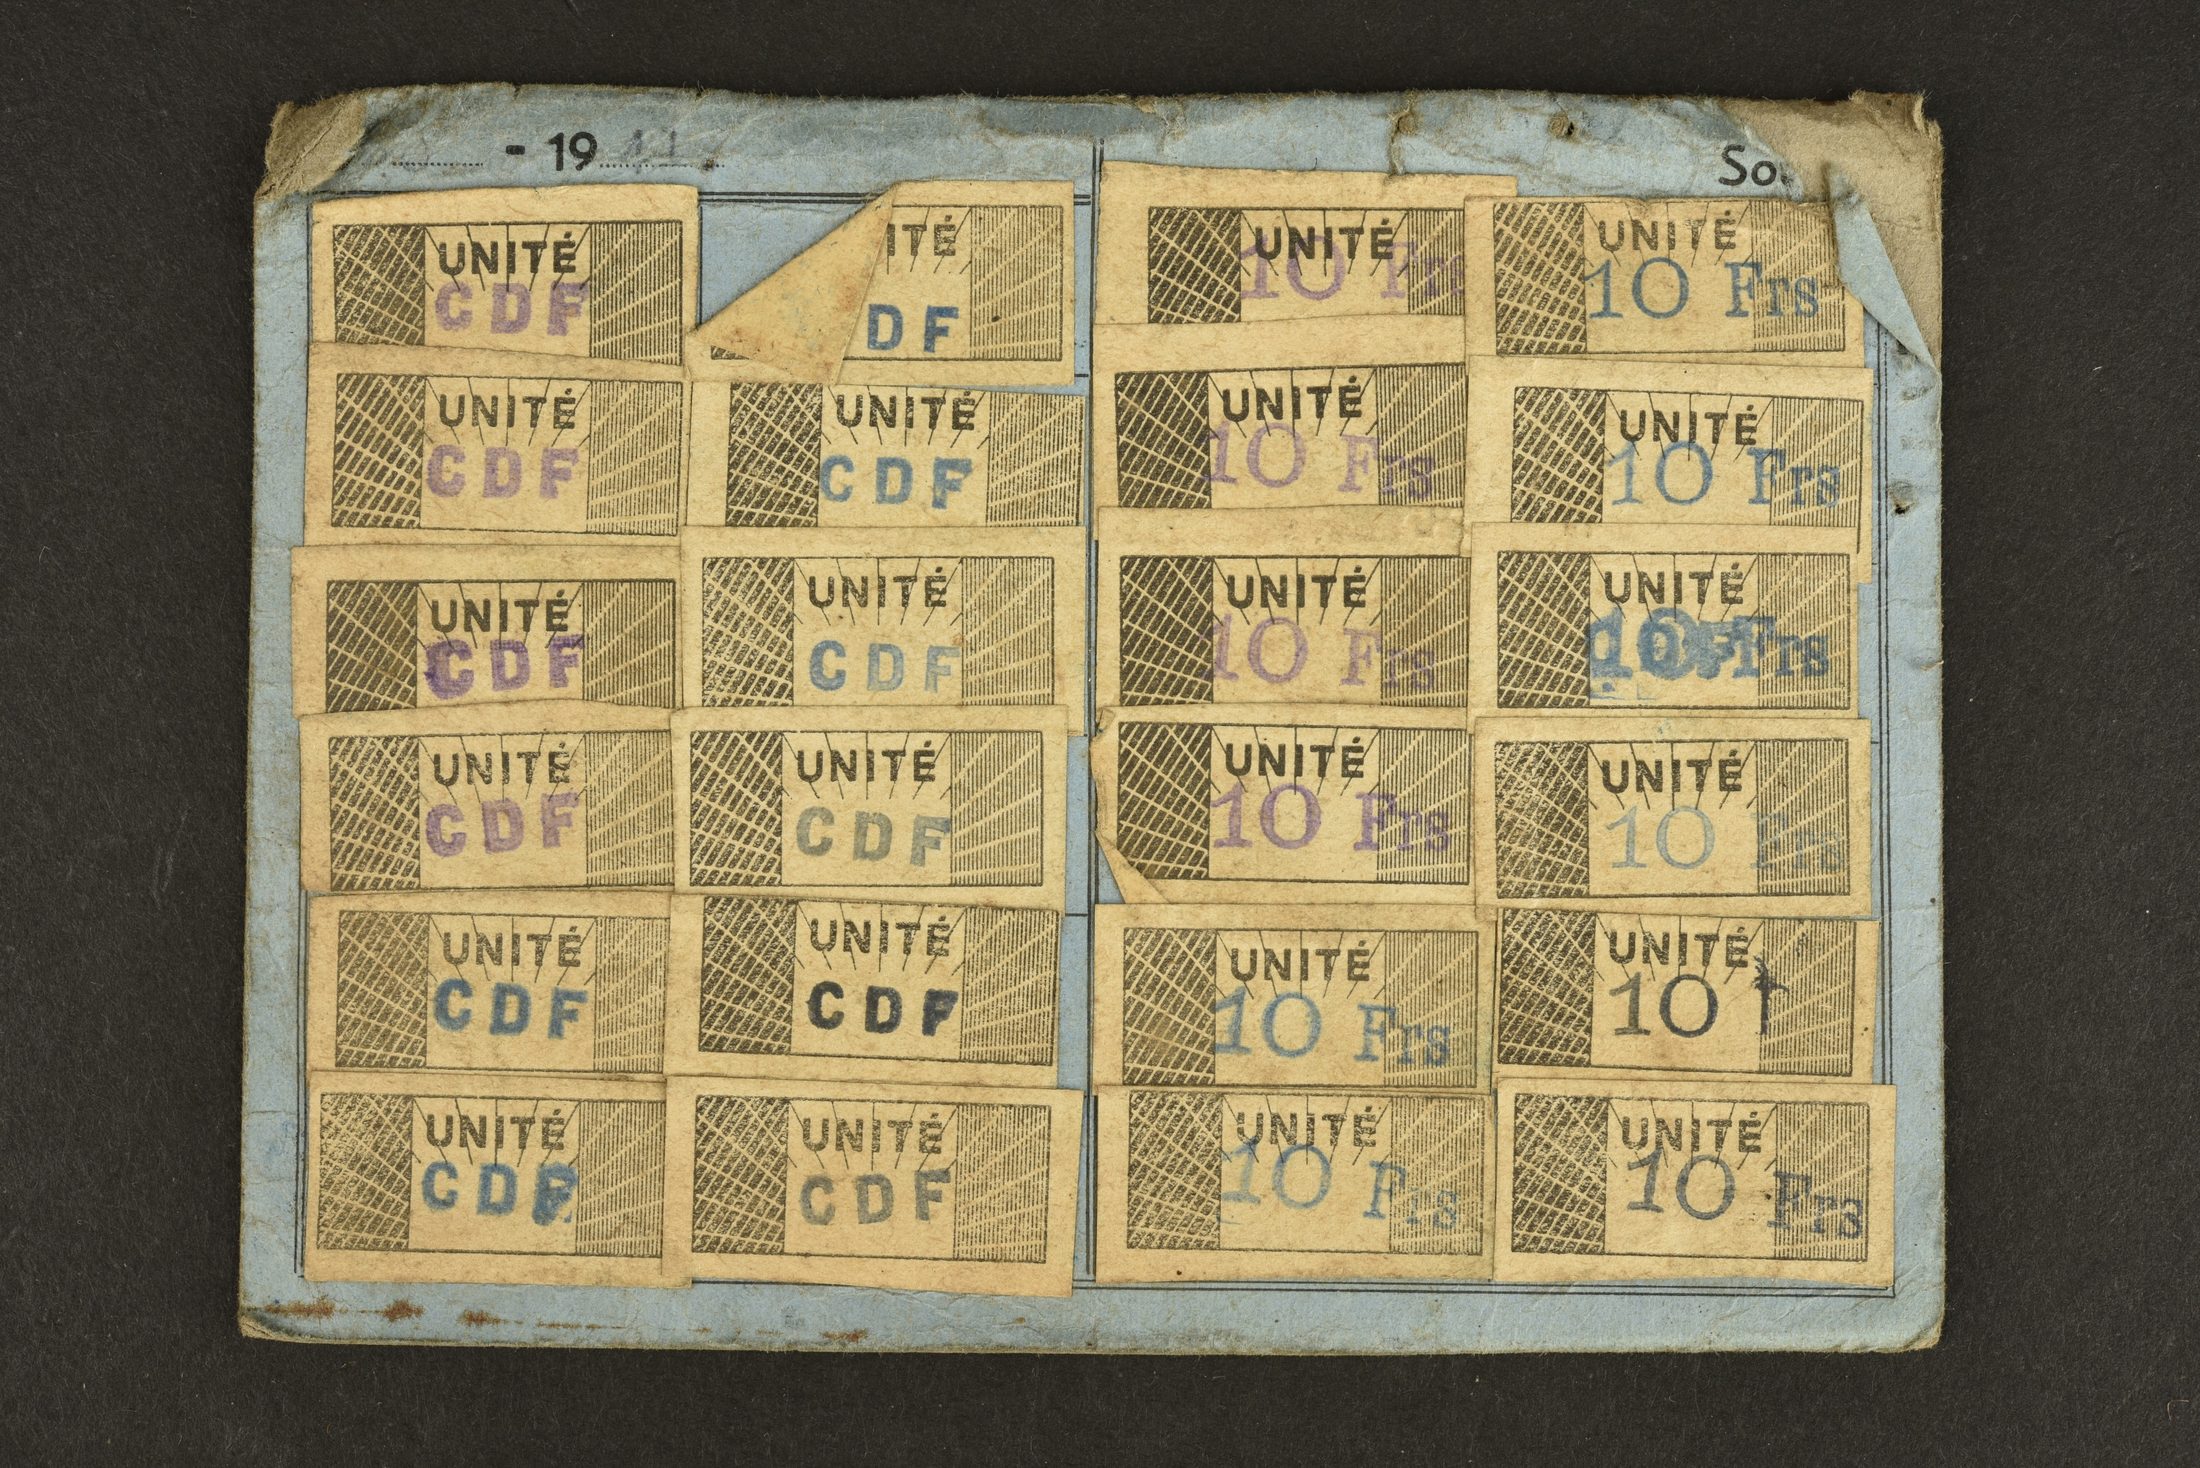 - 19
UNITÉ
CDF
ITÉ
DF
UNITÉ
CDF
UNITÉ
CDF
UNITÉ
CDF
UNITÉ
CDF
UNITÉ
CDF
UNITÉ
CDF
UNITÉ
CDF
UNITÉ
CDF
UNITÉ
CDF
UNITÉ
CDF
So
UNITÉ
10 Frs
UNITÉ
10 Frs
UNITÉ
10 Frs
UNITÉ
10 Frs
UNITÉ
10 Frs
UNITÉ
10 Frs
UNITÉ
10 Frs
UNITÉ
10 Frs
UNITÉ
10 Frs
UNITÉ
10
UNITÉ
10 Frs
UNITÉ
10 Frs